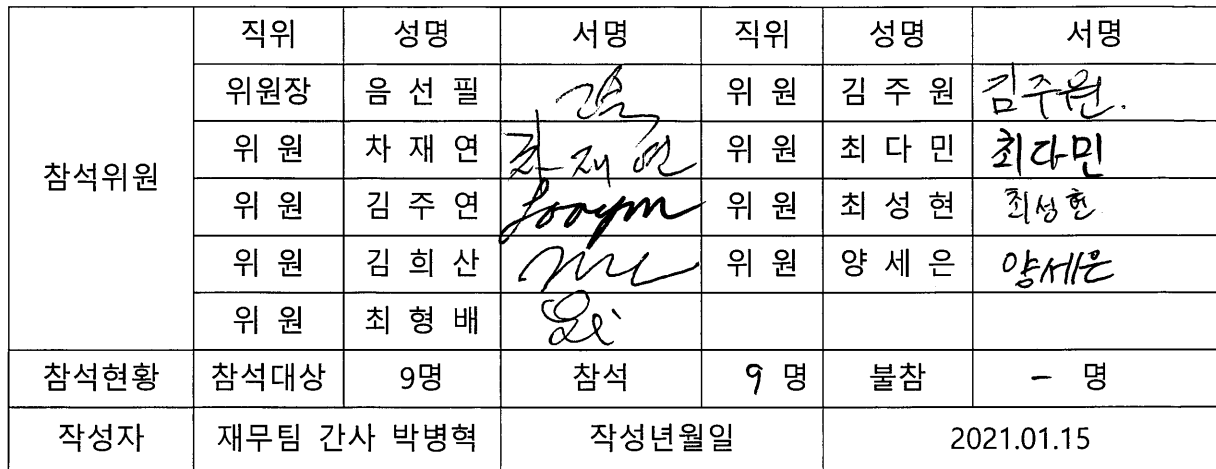 직위 성명 서명 직위 성명 서명
위원장 음 선 필 위 원 김 주 원 김주원.
위 원 차 재 연 차재연 위 원 최 다 민 최다민
참석위원
위 원 김 주 연 Jooyeon 위 원 최 성 현 최성현
위 원 김 희 산 위 원 양 세 은 양세은
위 원 최 형 배
참석현황 참석대상 9명 참석 9 명 불참 - 명
작성자 재무팀 간사 박병혁 작성년월일 2021.01.15